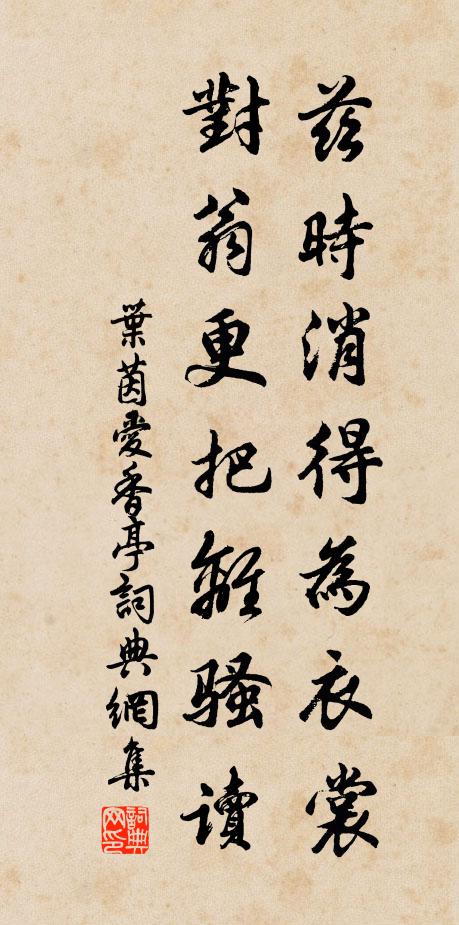 茲時消得為衣裳
對翁更把離騷讀
葉茵愛香亭詞典網集
詞典
网印